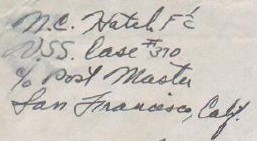 N.C. Hatch F'c
U.S.S. Case #370
c/o Post Master
San Francisco, Calif.